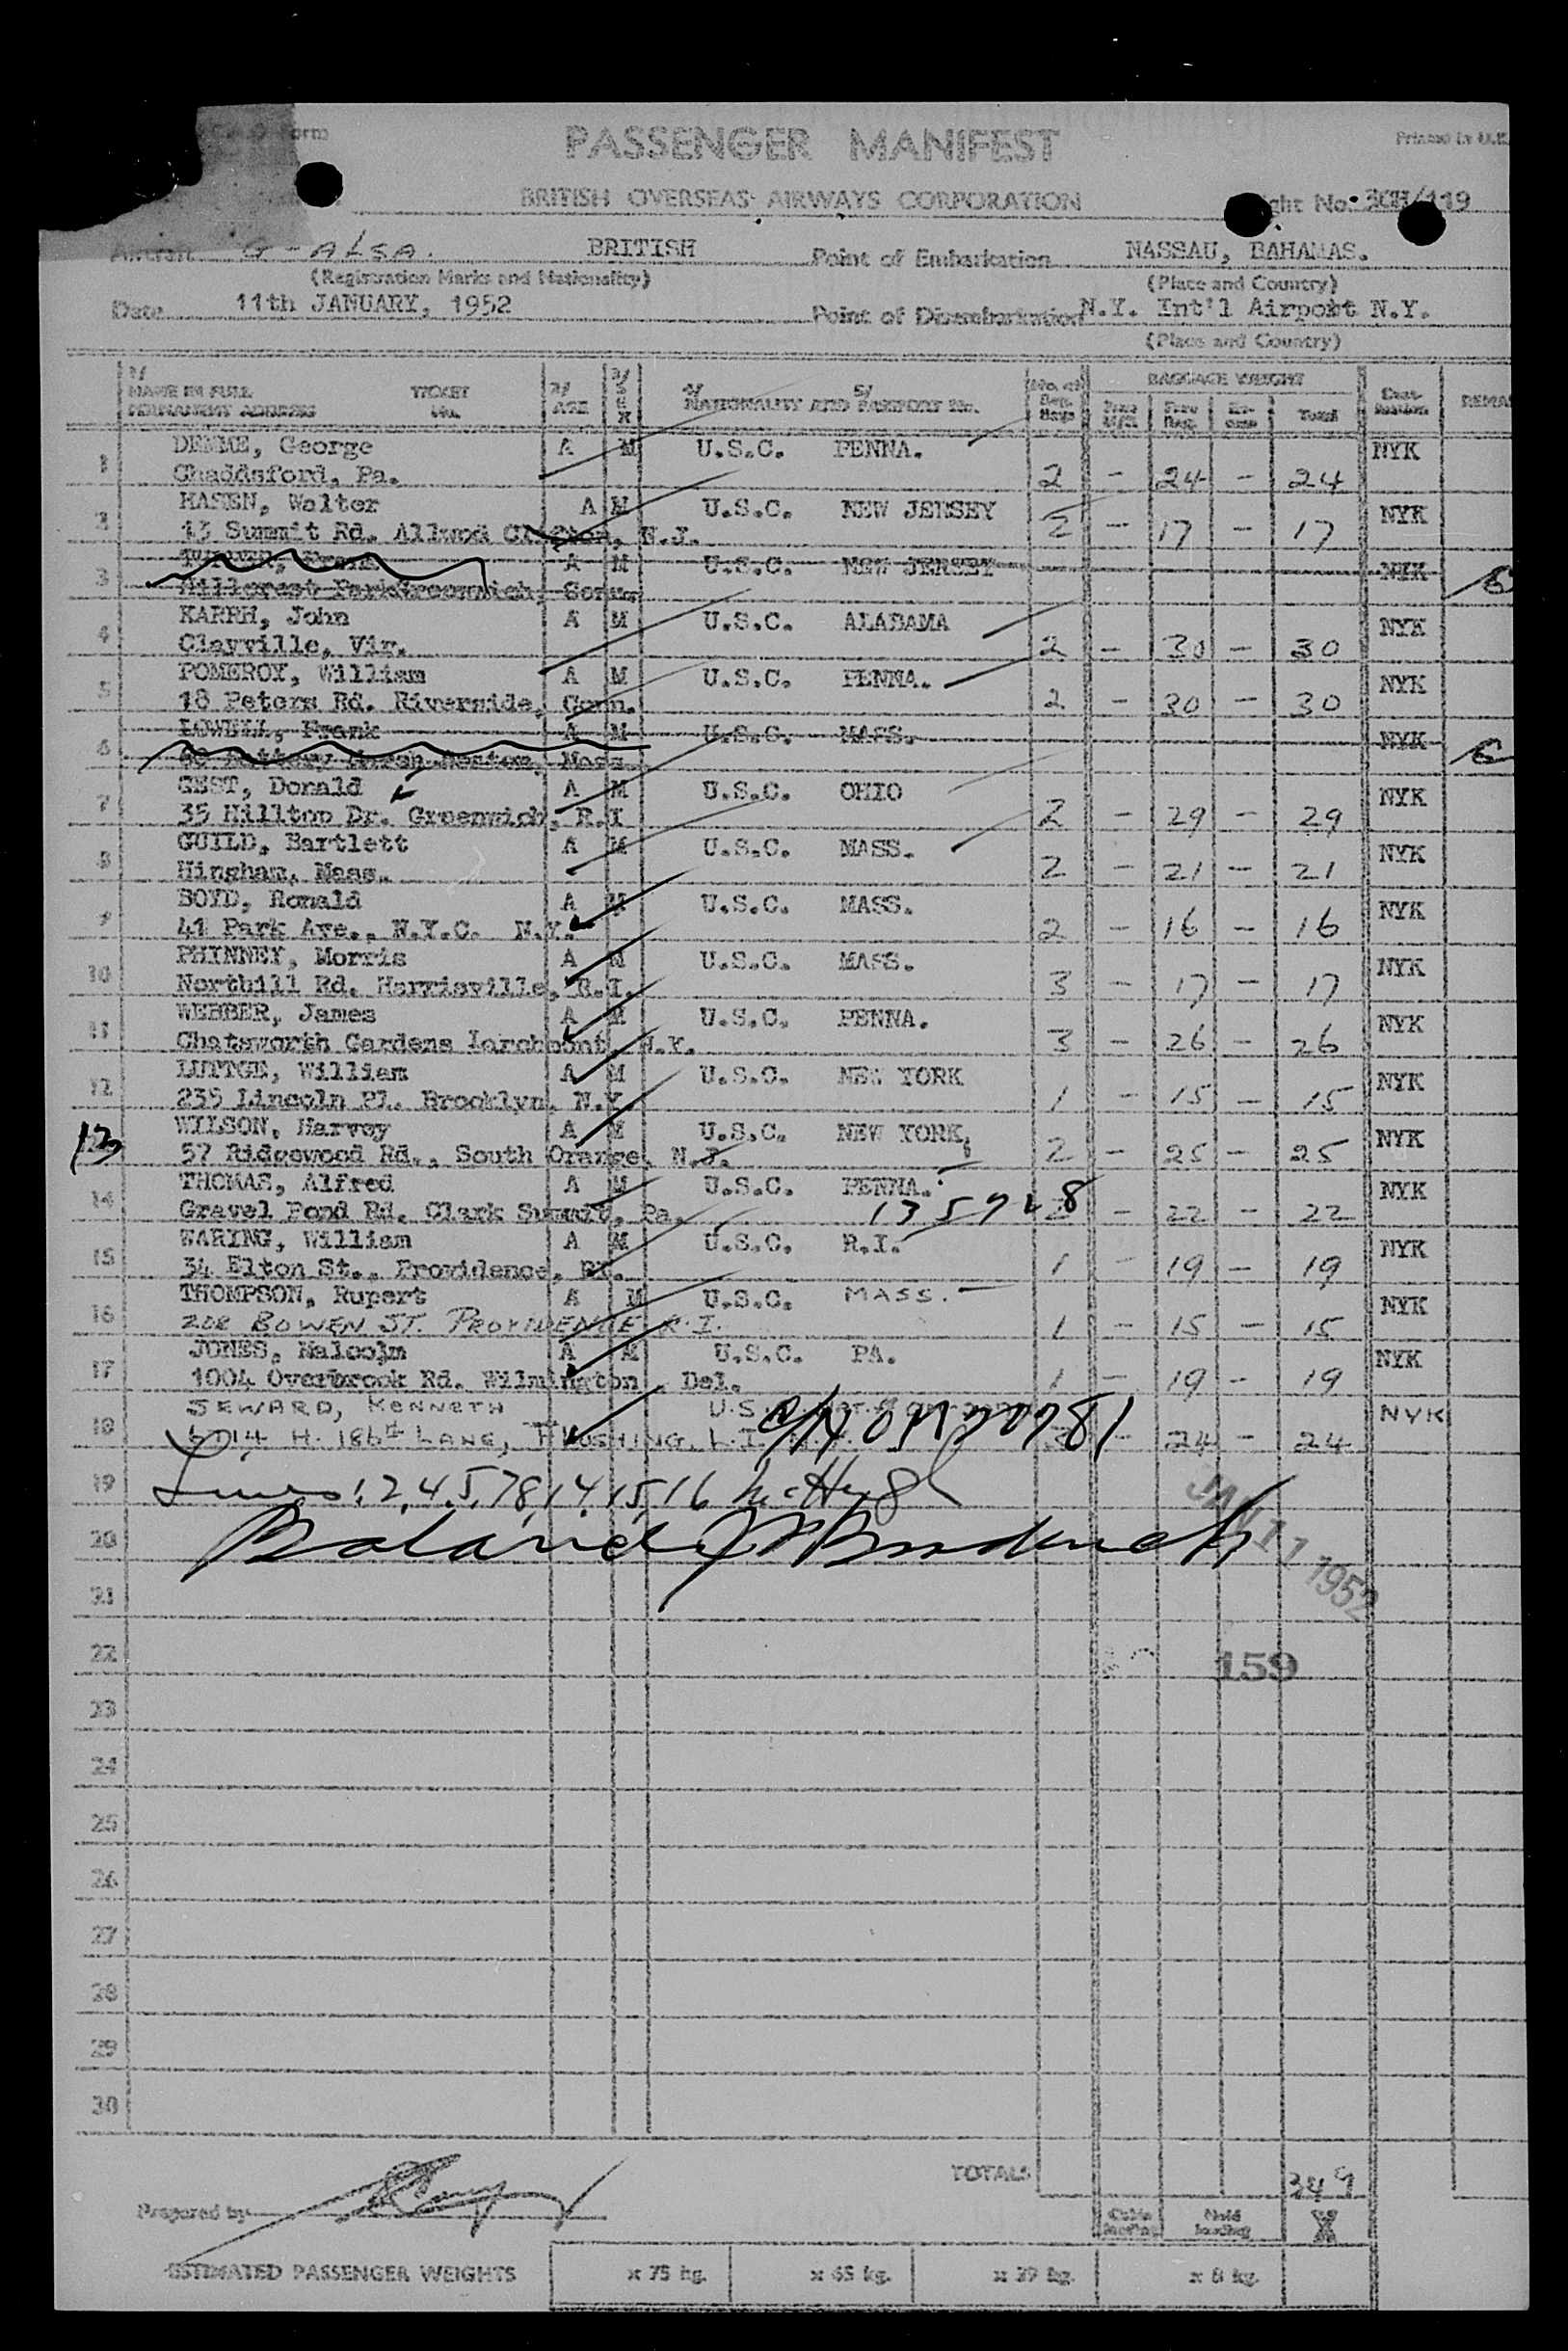 Form
PASSENGER MANIFEST
Printed in U.K.
BRITISH OVERSEAS AIRWAYS CORPORATION
ght No. 3CH/119
Aircraft G-ALSA. BRITISH Point of Embarkation NASSAU, BAHAMAS.
(Registration Marks and Nationality) (Place and Country)
Date 11th JANUARY, 1952 Point of Disembarkation N.Y. Int'l Airport N.Y.
(Place and Country)
1/ NAME IN FULL PERMANENT ADDRESS TICKET No. 2/ AGE 3/ SEX 4/ NATIONALITY AND 5/ PASSPORT No. No. of BAGGAGE WEIGHT Total REMA
1 George A M U.S.C. PENNA. NYK
Chaddsford, Pa. 2 - 24 - 24
2 HASEN, Walter A M U.S.C. NEW JERSEY NYK
13 Summit Rd. Allwood Clifton, N.J. 2 - 17 - 17
3 A M U.S.C. NEW JERSEY NYK
Hillcrest Park Greenwich, Conn.
4 KARRH, John A M U.S.C. ALABAMA NYK
Clayville, Vir. 2 - 30 - 30
5 POMEROY, William A M U.S.C. PENNA. NYK
18 Peters Rd. Riverside, Conn. 2 - 30 - 30
6 LOWELL, Frank A M U.S.C. MASS. NYK
Mass.
7 GEST, Donald A M U.S.C. OHIO NYK
35 Hilltop Dr. Greenwich, R.I 2 - 29 - 29
8 GUILD, Bartlett A M U.S.C. MASS. NYK
Hingham, Mass. 2 - 21 - 21
9 BOYD, Ronald A M U.S.C. MASS. NYK
41 Park Ave., N.Y.C. N.Y. 2 - 16 - 16
10 PHINNEY, Morris A M U.S.C. MASS. NYK
Northill Rd. Harrisville, R.I. 3 - 17 - 17
11 WEBBER, James A M U.S.C. PENNA. NYK
Chatsworth Gardens Larchmont, N.Y. 3 - 26 - 26
12 LUTTGE, William A M U.S.C. NEW YORK NYK
235 Lincoln Pl. Brooklyn, N.Y. 1 - 15 - 15
13 WILSON, Harvey A M U.S.C. NEW YORK NYK
57 Ridgewood Rd., South Orange, N.J. 2 - 25 - 25
14 THOMAS, Alfred A M U.S.C. PENNA. NYK
Gravel Pond Rd. Clark Summit, Pa. - 22 - 22
15 WARING, William A M U.S.C. R.I. NYK
34 Elton St., Providence, RI. 1 - 19 - 19
16 THOMPSON, Rupert A M U.S.C. MASS. NYK
208 BOWEN ST. PROVIDENCE R.I. 1 - 15 - 15
17 JONES, Malcolm A M U.S.C. PA. NYK
1004 Overbrook Rd. Wilmington, Del. 1 - 19 - 19
18 SEWARD, KENNETH U.S. NYK
H. 186th LANE, FLUSHING, L.I. - 24 - 24
19 Lines 1,2,4,5,7,8,14,15,16 McHugh
20
JAN 11 1952
21
22 159
23
24
25
26
27
28
29
30
TOTALS 349
Prepared by
Cabin loading Hold loading
ESTIMATED PASSENGER WEIGHTS x 75 kg. x 65 kg. x 39 kg. x 8 kg.